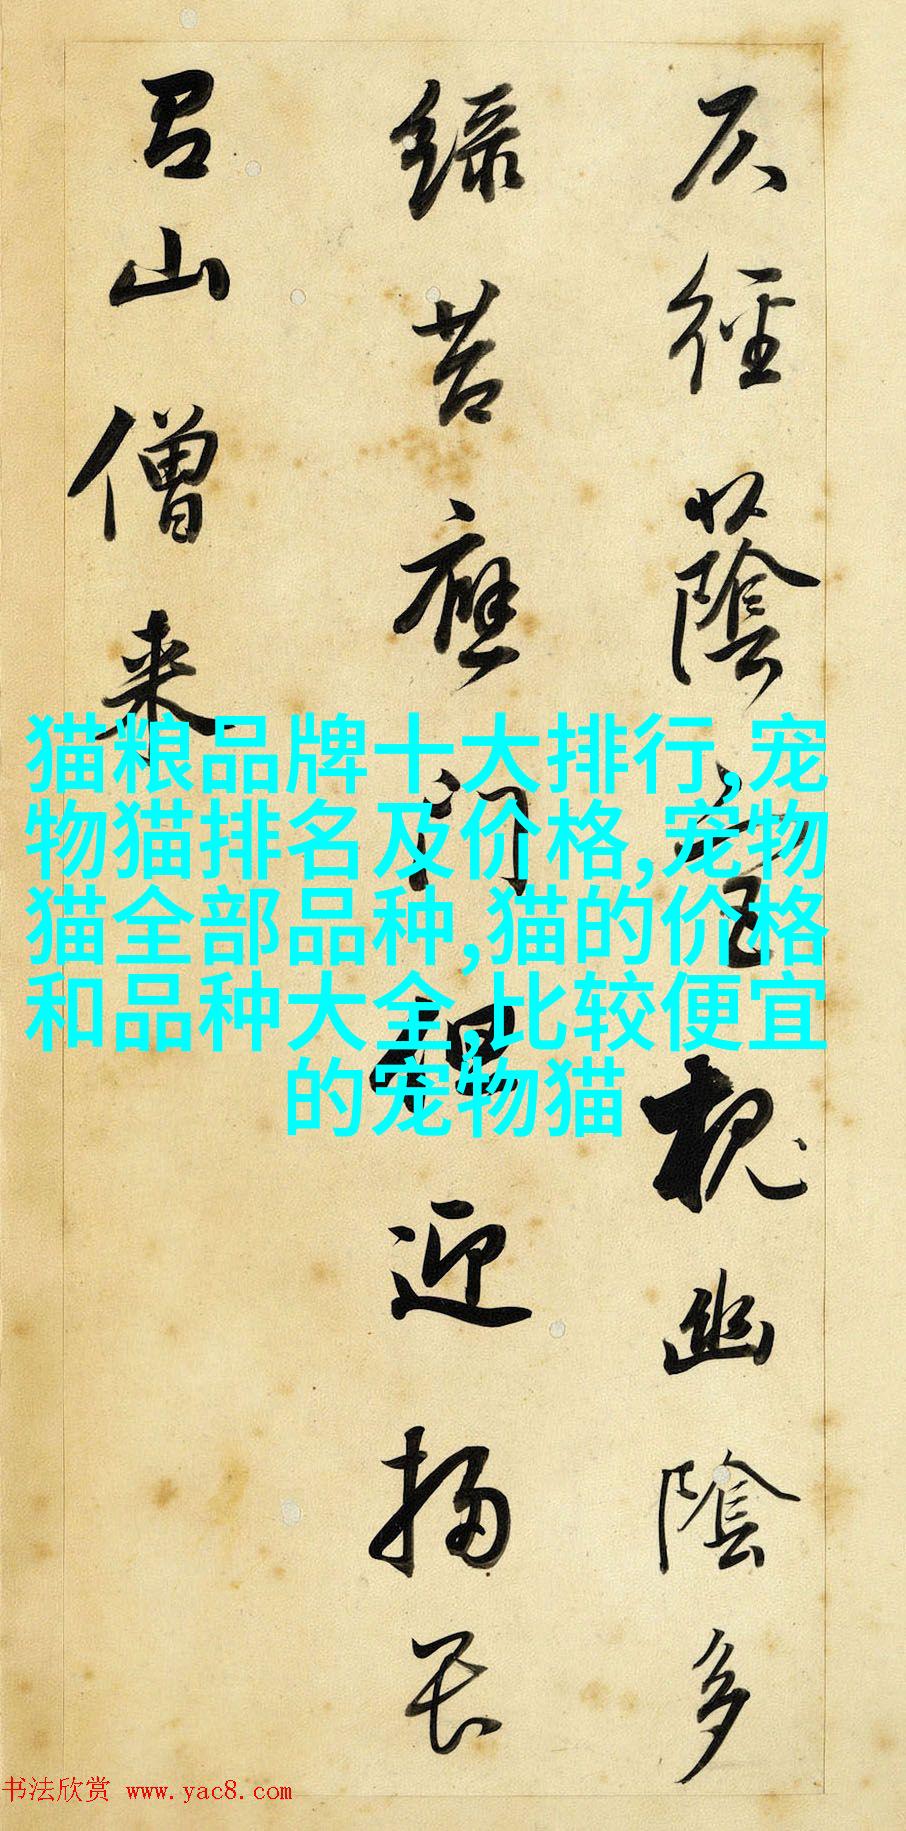 仄徑蔭宮槐幽陰多
綠苔應門迎掃
山僧来
猫粮品牌十大排行,宠
物猫排名及价格,宠物
猫全部品种,猫的价格
和品种大全,比较便宜
的宠物猫
书法欣赏 www.yac8.com